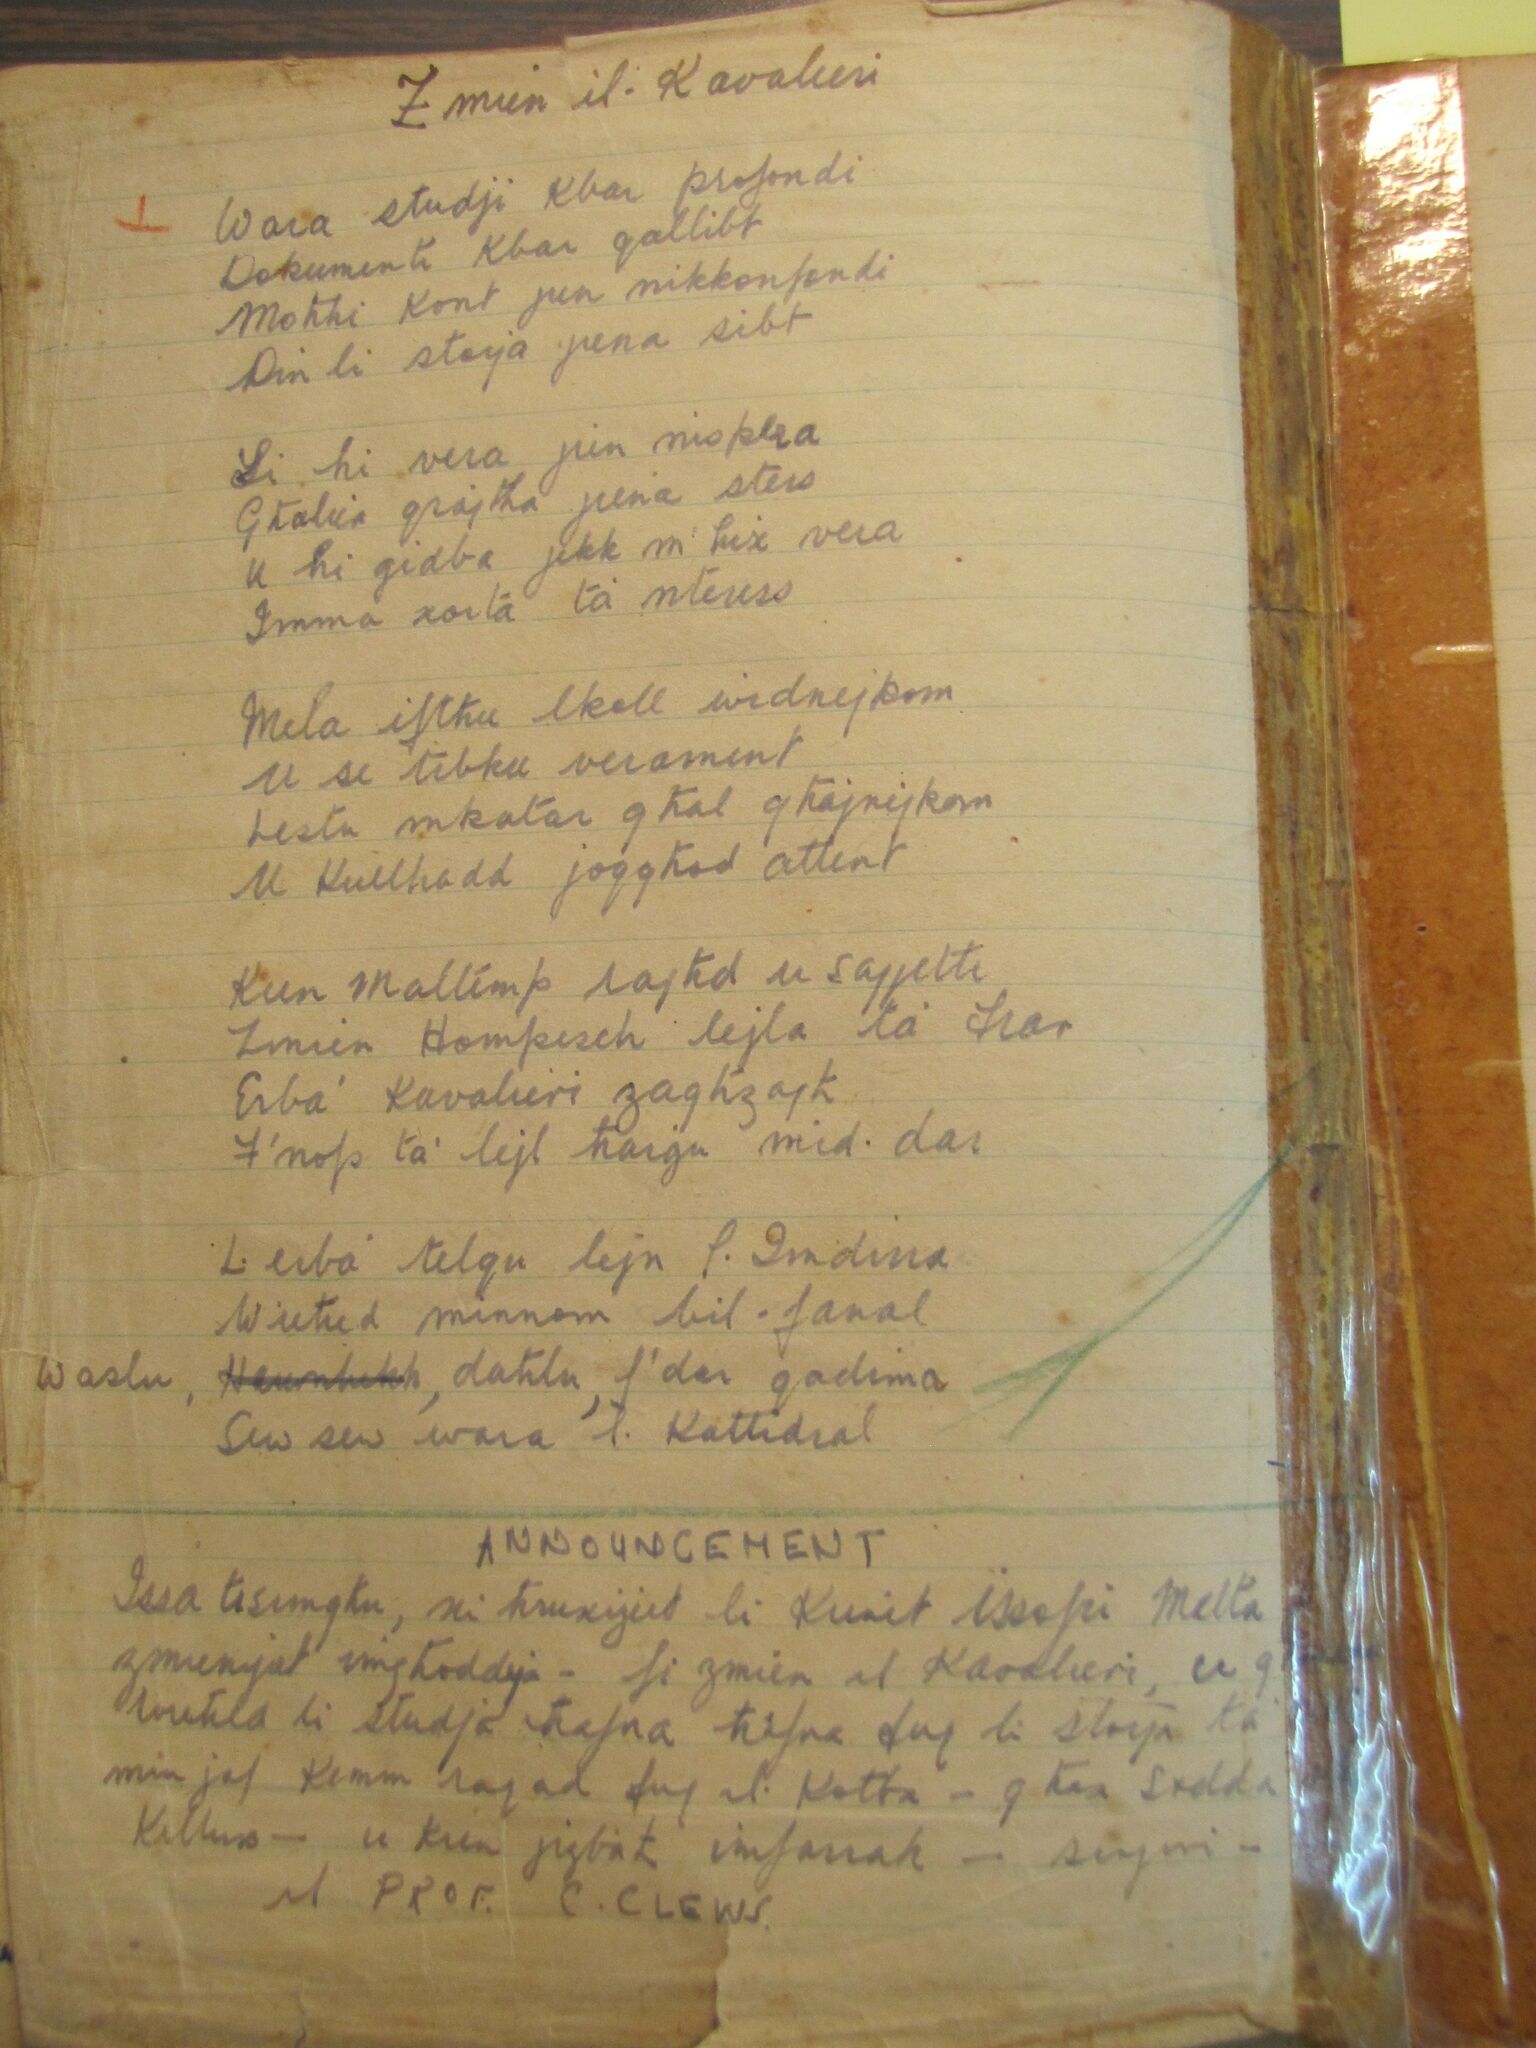 Żmien il-Kavalieri
Wara studji kbar profondi
Dokumenti kbar qallibt
Moħħi kont jien nikkonfondi
Din li storja jiena sibt
Li hi vera jien nispera
Għalia qrajtha jiena stess
U hi gidba jekk m'hix vera
Imma xorta ta nteress
Mela iftħu lkoll widnejkom
U se tibku verament
Lestu mkatar għal għajnejkom
U kullhadd joqgħod attent
Kien Maltemp ragħd u sajjetti
Zmien Hompesch lejla ta Frar
Erba' Kavalieri żagħżagħ
F'nofs ta' lejl ħargu mid-dar
L-erba' telqu lejn l-Imdina
Wieħed minnom bil-fanal
Waslu, daħlu, f'dar qadima
Sew sew wara l-Kattidral
ANNOUNCEMENT
Issa tisimgħu, xi ħruxijiet li Kienit issofri Malta
żmenijiet imgħoddija - fi zmien il Kavalieri, u
wieħed li studja ħafna ħafna fuq li storja ta
min jaf kemm raqad fuq il-Kotba - għax Sidda
Kellux - u kien jiżbaħ imfarrak - sinjuri -
il PROF. C. CLEWS.